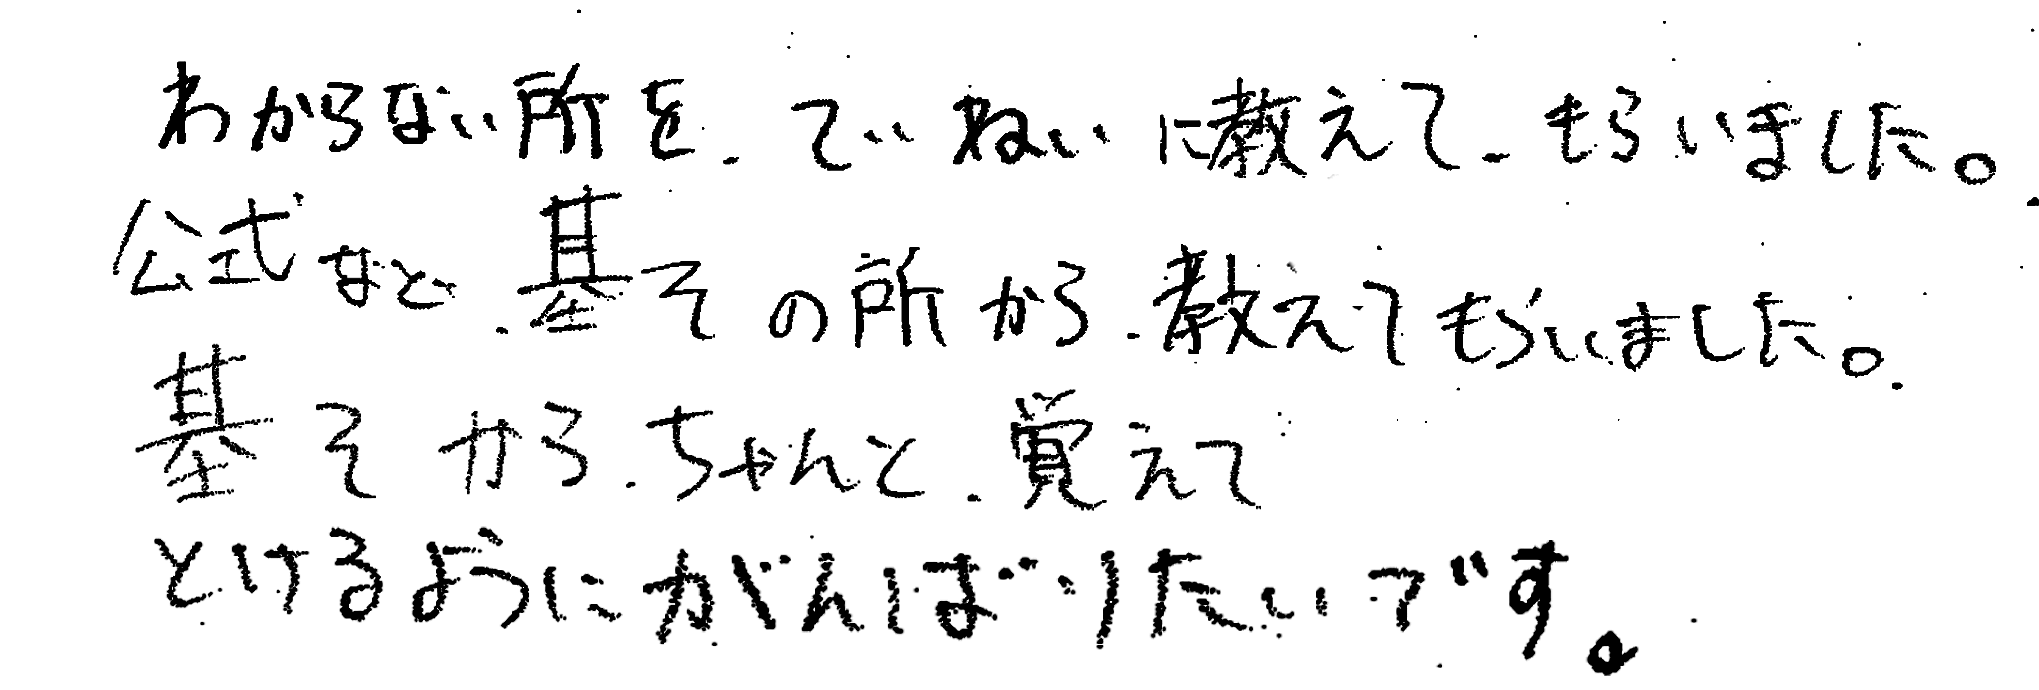 わからない所を、ていねいに教えて、もらいました。
公式など、基その所から、教えてもらいました。
基そから、ちゃんと、覚えて
とけるようにがんばりたいです。